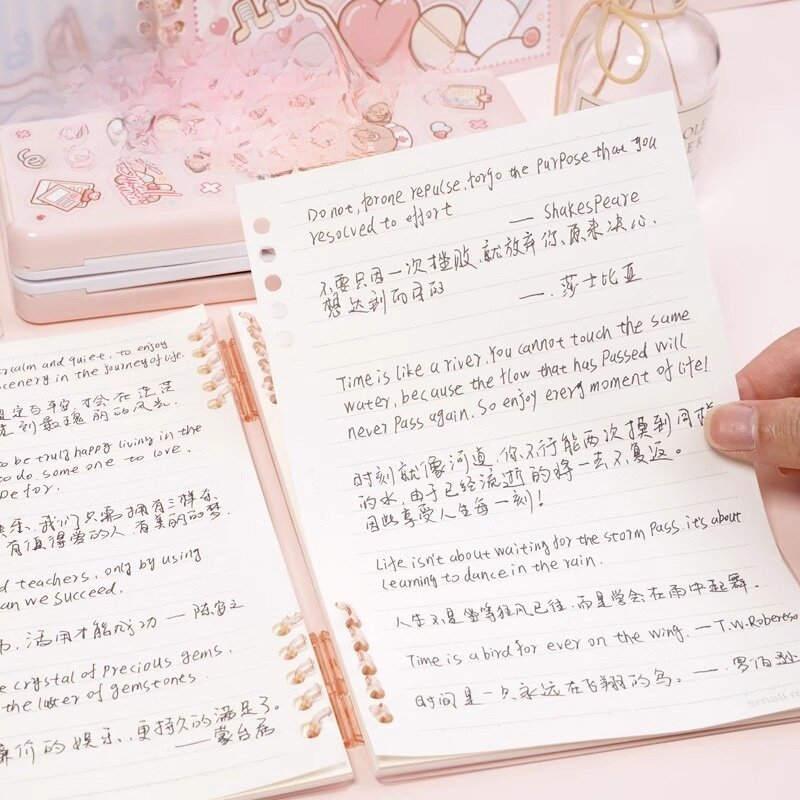 Do not, for one repulse, forgo the purpose that you
resolved to effort — Shakespeare
不要只因一次挫败,就放弃你原来决心
想达到的目的 —.莎士比亚
Time is like a river. You cannot touch the same
water, because the flow that has passed will
never pass again. So enjoy every moment of life!
时刻就像河道,你不行能两次摸到同
的水,由于已经流逝的将一去不复返。
因此享受人生每一刻!
Life isn't about waiting for the storm pass. it's about
learning to dance in the rain.
人生不是坐等狂风已往,而是学会在雨中起舞。
Time is a bird for ever on the wing. — T.W. Robertso
时间是一只永远在飞翔的鸟。—.罗伯逊
small
calm and quiet, to enjoy
scenery in the journey of life.
o be truly happy living in the
to do. some one to love,
pe for.
乐,我们只需拥有三样东
有值得爱的人,有美丽的梦.
d teachers, only by using
an we succeed.
活用才能成功 —
e crystal of precious gems,
the luster of gemstones.
廉价的娱乐,更持久的满足了。
——蒙台居